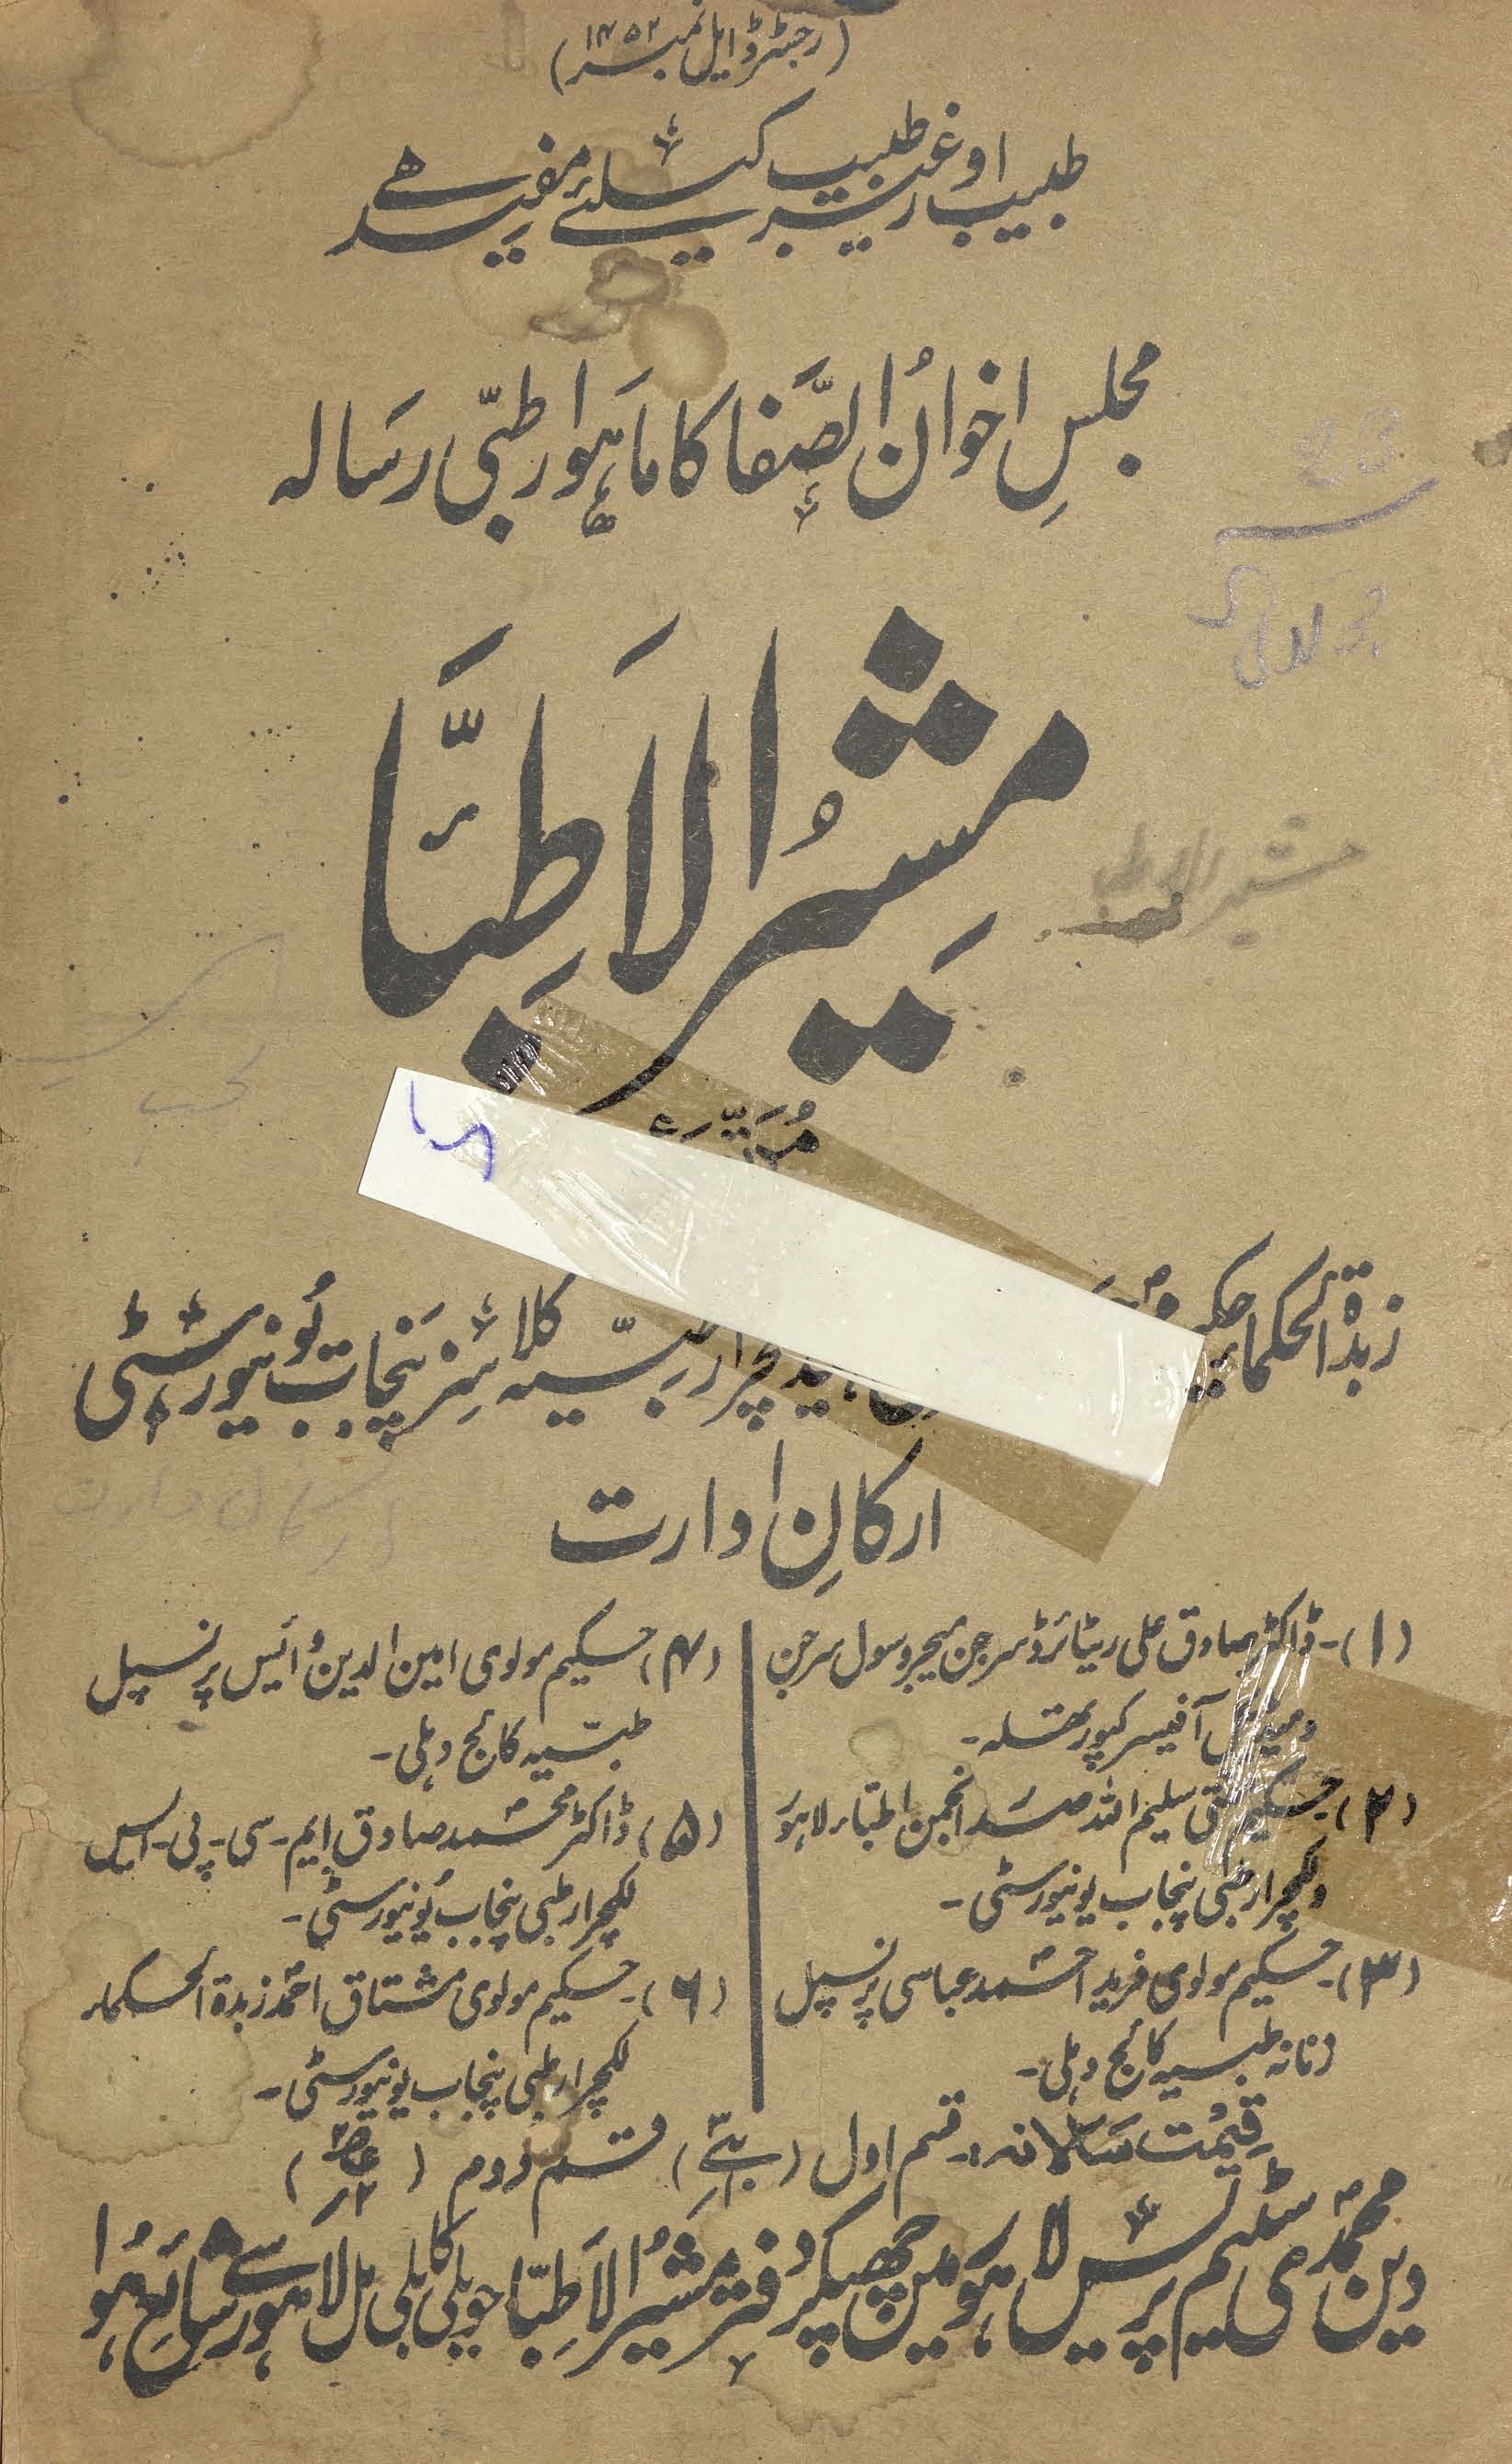 (رجسٹرڈ ایل نمبر ۱۴۵۲)
طبیب اور غیر طبیب کیلئے مفید ہے
مجلسِ اخوانُ الصَّفا کا ماہوار طبّی رسالہ
مشیرُ الاَطِبَّا
زبدۃ الحکما حکیم
لکچرار طبّیہ کلاسز پنجاب یُونیورسٹی
ارکانِ ادارت
(۱)۔ ڈاکٹر صادق علی ریٹائرڈ سرجن میجر و سول سرجن
و میڈیکل آفیسر کپورتھلہ۔
(۲) حکیم مفتی سلیم اللہ صدر انجمن اطبّاء لاہور
و لکچرار طبی پنجاب یونیورسٹی۔
(۳)۔ حکیم مولوی فرید احمد عباسی پرنسپل
زنانہ طبیہ کالج دہلی۔
(۴) حکیم مولوی امین الدین وائیس پرنسپل
طبّیہ کالج دہلی۔
(۵) ڈاکٹر محمد صادق ایم۔سی۔پی۔ایس
لکچرار طبی پنجاب یُونیورسٹی۔
(۶)۔ حکیم مولوی مشتاق احمد زبدۃ الحکماء
لکچرار طبی پنجاب یونیورسٹی۔
قیمت سالانہ:۔ قسم اول ( ) قسم دوم ( )
دین محمدی سٹیم پریس لاہور میں چھپکر دفتر مشیرُ الاَطِبّا حویلی کابلی مل لاہور سے شائع ہوا
مشیر الاطبا